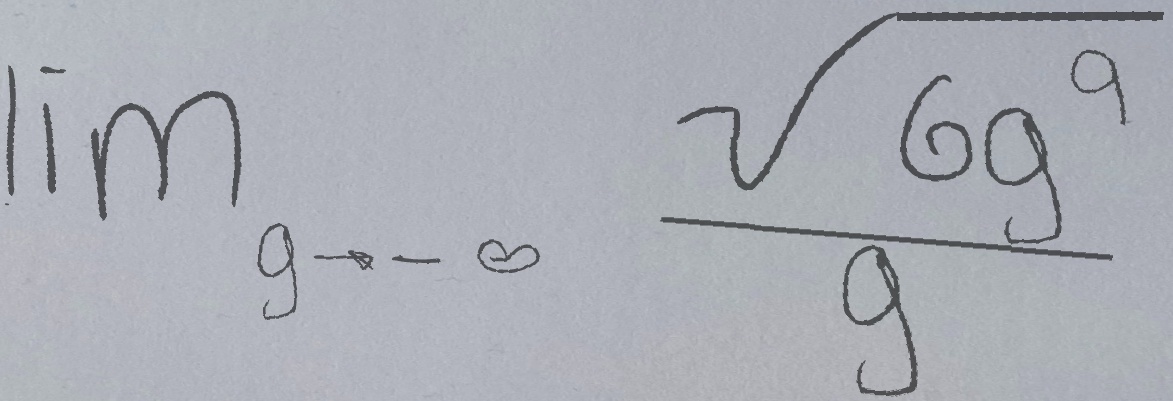 lim g→-∞ √(6g^9) / g